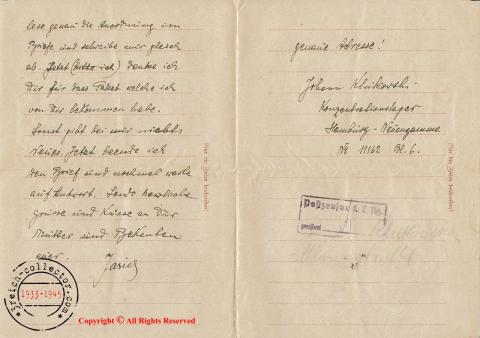 lese genau die Anordnung im
Briefe und schreibe mir gleich
ab. Jetzt (bitte ich) danke ich
Dir für das Paket welche ich
von Dir bekommen habe.
Sonst gibt bei mir nichts
Neues. Jetzt beende ich
den Brief und nochmal warte
auf Antwort. Sende herzliche
grüsse und Küsse an Dur
Mutter und Bekenten
genaue Adresse!
Johann
Konzentrationslager
Hamburg-Neuengamme
№ 11162 Bl. 6.
Postzensur K. L.
geprüft
3reich-collector.com
1933-1945
Copyright © All Rights Reserved